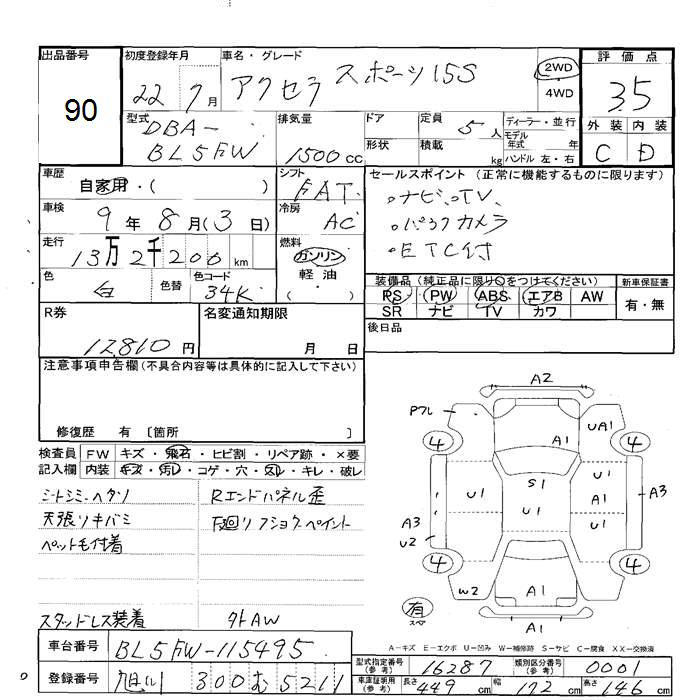 出品番号
90
初度登録年月
22 7月
車名・グレード
アクセラ スポーツ 15S
2WD
4WD
評価点
3.5
外装 内装
C D
型式
DBA-
BL5FW
排気量
1500cc
ドア
形状
定員
5人
積載
kg
ディーラー・並行
モデル年式 年
ハンドル 左・右
車歴
自家用・( )
シフト
FAT
セールスポイント (正常に機能するものに限ります)
・ナビ、TV、
・バックカメラ
・ETC付
車検
9年 8月(3日)
冷房
AC
走行
13万2千200km
燃料
ガソリン
軽油
( )
色
白
色替
色コード
34K
装備品(純正品に限り○をつけてください)
PS PW ABS エアB AW
SR ナビ TV カワ
新車保証書
有・無
R券
12,810円
名変通知期限
月 日
後日品
注意事項申告欄(不具合内容等は具体的に記入して下さい)
修復歴 有 〔箇所 〕
検査員記入欄
FW キズ・飛石・ヒビ割・リペア跡・×要
内装 キズ・汚レ・コゲ・穴・スレ・キレ・破レ
シートシミ・ヘタリ
Rエンドパネル歪
天張リキバミ
下廻リ
ペット毛付着
スタッドレス装着
外AW
A2
Pフレ
A1
UA1
4
4
S1
U1
U1
A1
A3
U1
U1
A3
U2
4
4
W2
A1
有
スペア
A1
A-キズ E-エクボ U-凹み W-補修跡 S-サビ C-腐食 XX-交換済
車台番号
BL5FW-115495
型式指定番号(参考)
16287
類別区分番号(参考)
0001
登録番号
旭川 300 む 5211
車庫証明用(参考)
長さ 449cm
幅 172cm
高さ 146cm